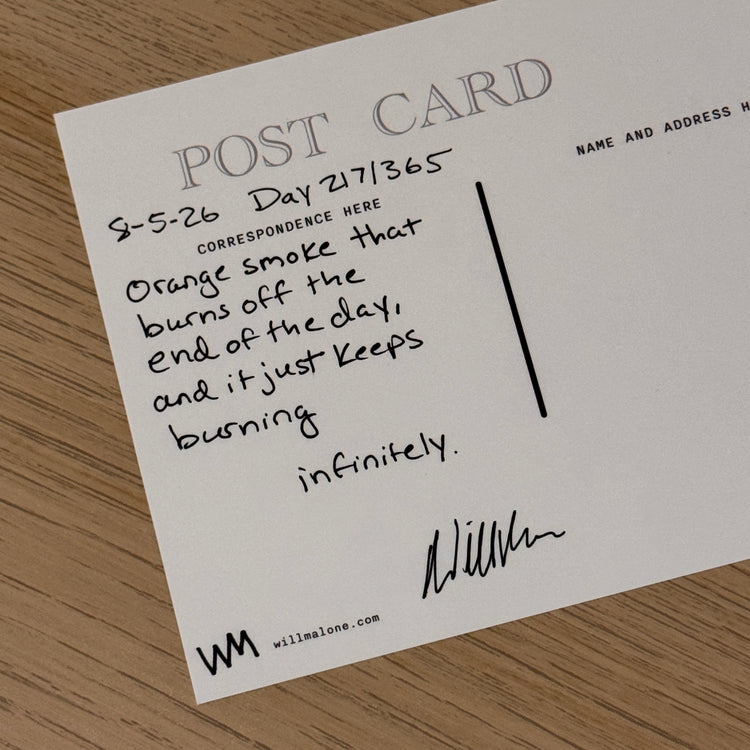 POST CARD
8-5-26 Day 217/365
CORRESPONDENCE HERE
Orange smoke that
burns off the
end of the day,
and it just keeps
burning
infinitely.
WM willmalone.com
NAME AND ADDRESS H